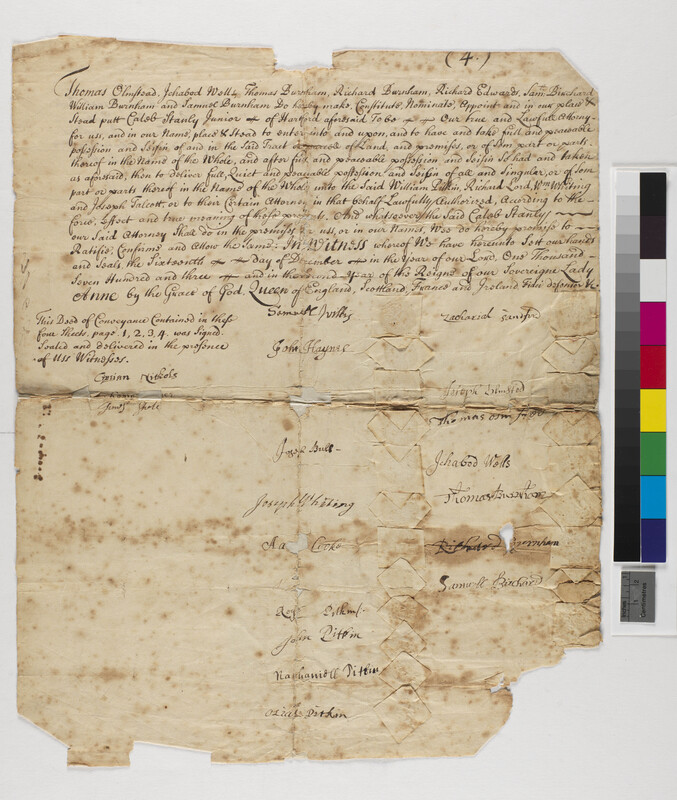 (4.)
Thomas Olmstead, Jchabod Wells, Thomas Burnham, Richard Burnham, Richard Edwards, Samll Birchard
William Burnham and Samuel Burnham Do hereby make, Constitute, Nominate, Appoint and in our place &
Stead putt Caleb Stanly Junior of Hartford aforesaid To be Our true and Lawfull Attorny
for us, and in our Name, place & Stead to enter into and upon, and to have and take full and peaceable
possession and Seisin of and in the said Tract or parcel of Land, and premises, or of Som part or parts
thereof in the Name of the Whole, and after full and peaceable possession and Seisin So had and taken
as aforesaid, then to deliver full, Quiet and peaceable possession and Seisin of all and Singular, or of Som
part or parts thereof in the Name of the Whole unto the Said William Pitkin, Richard Lord, Wm Whiting
and Joseph Talcott, or to their Certain Attorney in that behalf Lawfully Authorized, According to the
force, Effect and true meaning of these presents. And whatsoever the Said Caleb Stanly
our Said Attorney Shall do in the premises for us, or in our Names, Wee do hereby promise to
Ratifie, Confirme and Allow the Same: In Witness whereof We have hereunto Sett our hands
and Seals, the Sixteenth Day of December in the Year of our Lord, One Thousand
Seven Hundred and three and in the Second Year of the Reigne of our Sovereigne Lady
Anne by the Grace of God, Queen of England, Scotland, France and Ireland Fidei Defensor &c
This Deed of Conveyance Contained in these
four Sheets, page 1, 2, 3, 4. was Signed
Sealed and delivered in the presence
of Uss Witnesses.
Ciprian Nickols
Samuell Willys
John Haynes
Joseph Bull
Joseph Whiteing
Aa Cooke
Rog Pitkin
John Pitkin
Nathaniell Pitkin
Ozias Pitkin
Zachariah Sanford
Joseph Olmsted
Thomas
Jchabod Wells
Thomas Burnham
Richard Burnham
Samuell Birchard
Centimetres